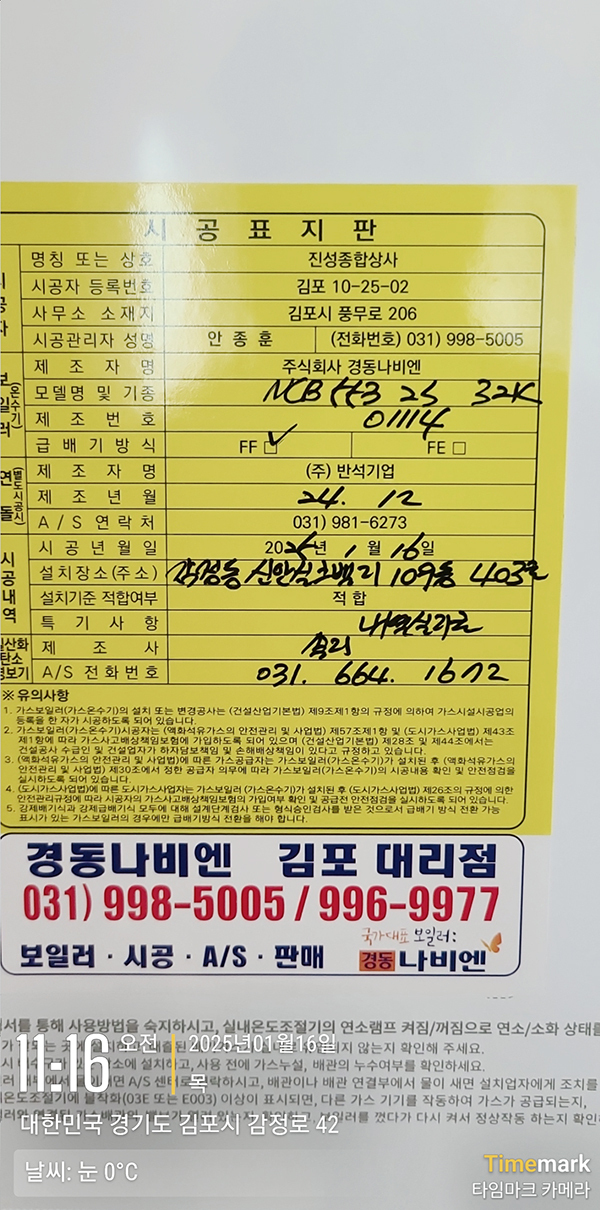 시 공 표 지 판
시공자
명칭 또는 상호 진성종합상사
시공자 등록번호 김포 10-25-02
사무소 소재지 김포시 풍무로 206
시공관리자 성명 안 종 훈 (전화번호) 031) 998-5005
보일러 (온수기)
제 조 자 명 주식회사 경동나비엔
모델명 및 기종 NCB 553 25 32K
제 조 번 호 01114
급 배 기 방 식 FF ☑ FE □
연돌 (별도시공시)
제 조 자 명 (주) 반석기업
제 조 년 월 24. 12
A/S 연 락 처 031) 981-6273
시공내역
시 공 년 월 일 2025년 1월 16일
설치장소(주소) 감정동 신안실크밸리 109동 403호
설치기준 적합여부 적 합
특 기 사 항
일산화탄소경보기
제 조 사
A/S 전화번호 031. 664. 1672
※ 유의사항
1. 가스보일러(가스온수기)의 설치 또는 변경공사는 (건설산업기본법) 제9조제1항의 규정에 의하여 가스시설시공업의
등록을 한 자가 시공하도록 되어 있습니다.
2. 가스보일러(가스온수기)시공자는 (액화석유가스의 안전관리 및 사업법) 제57조제1항 및 (도시가스사업법) 제43조
제1항에 따라 가스사고배상책임보험에 가입하도록 되어 있으며 (건설산업기본법) 제28조 및 제44조에서는
건설공사 수급인 및 건설업자가 하자담보책임 및 손해배상책임이 있다고 규정하고 있습니다.
3. (액화석유가스의 안전관리 및 사업법)에 따른 가스공급자는 가스보일러(가스온수기)가 설치된 후 (액화석유가스의
안전관리 및 사업법) 제30조에서 정한 공급자 의무에 따라 가스보일러(가스온수기)의 시공내용 확인 및 안전점검을
실시하도록 되어 있습니다.
4. (도시가스사업법)에 따른 도시가스사업자는 가스보일러 (가스온수기)가 설치된 후 (도시가스사업법) 제26조의 규정에 의한
안전관리규정에 따라 시공자의 가스사고배상책임보험의 가입여부 확인 및 공급전 안전점검을 실시하도록 되어 있습니다.
5. 강제배기식과 강제급배기식 모두에 대해 설계단계검사 또는 형식승인검사를 받은 것으로서 급배기 방식 전환 가능
표시가 있는 가스보일러의 경우에만 급배기방식 전환을 해야 합니다.
경동나비엔 김포 대리점
031) 998-5005 / 996-9977
보일러 · 시공 · A/S · 판매
국가대표 보일러:
경동나비엔
서를 통해 사용방법을 숙지하시고, 실내온도조절기의 연소램프 켜짐/꺼짐으로 연소/소화 상태를
않는지 확인해 주세요.
설치하고, 사용 전에 가스누설, 배관의 누수여부를 확인하세요.
A/S 센터로 연락하시고, 배관이나 배관 연결부에서 물이 새면 설치업자에게 조치를
온도조절기에 불착화(03E 또는 E003) 이상이 표시되면, 다른 가스 기기를 작동하여 가스가 공급되는지,
껐다가 다시 켜서 정상작동 하는지 확인
11:16 오전 2025년01월16일
목
대한민국 경기도 김포시 감정로 42
날씨: 눈 0°C
Timemark
타임마크 카메라